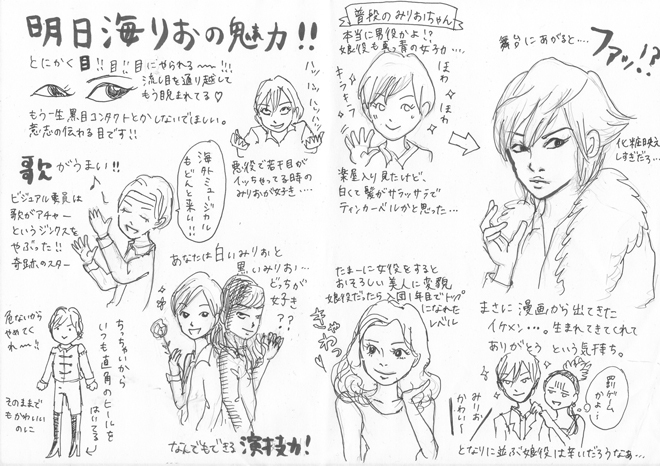 明日海りおの魅力!!
とにかく目!!目!!目にやられる〜〜!!!
流し目を通り越して
もう睨まれてる♡
もう一生、黒目コンタクトとかしないでほしい。
意志の伝わる目です!!
ハッ
ハッ
ハッハッハッ
悪役で若干目が
イッちゃってる時の
みりおが好き….
歌がうまい!!
ビジュアル要員は
歌がアチャー
というジンクスを
やぶった!!
奇跡のスター
海外ミュージカル
もどんと来い!!
あなたは白いみりおと
黒いみりお…
どっちが
好き
??
なんでもできる演技力!
危ないから
やめてく
れ〜!!
そのままで
もかわいい
のに
ちっちゃいから
いつも直角のヒールを
はいてる
普段のみりおちゃん
本当に男役かよ!?
娘役も真っ青の女子力….
キラキラ
ほわ
ほわ
楽屋入り見たけど、
白くて髪がサラッサラで
ティンカーベルかと思った…
舞台にあがると….
ファッ!?
化粧映え
しすぎだろ…
まさに漫画から出てきた
イケメン…。生まれてきてくれて
ありがとうという気持ち。
たまーに女役をすると
おそろしい美人に変貌
娘役だったら入団1年目でトップ
になれた
レベル
きゃわっ
罰ゲーム
かよ…
みりお
かわい〜
となりに並ぶ娘役は辛いだろうなぁ…